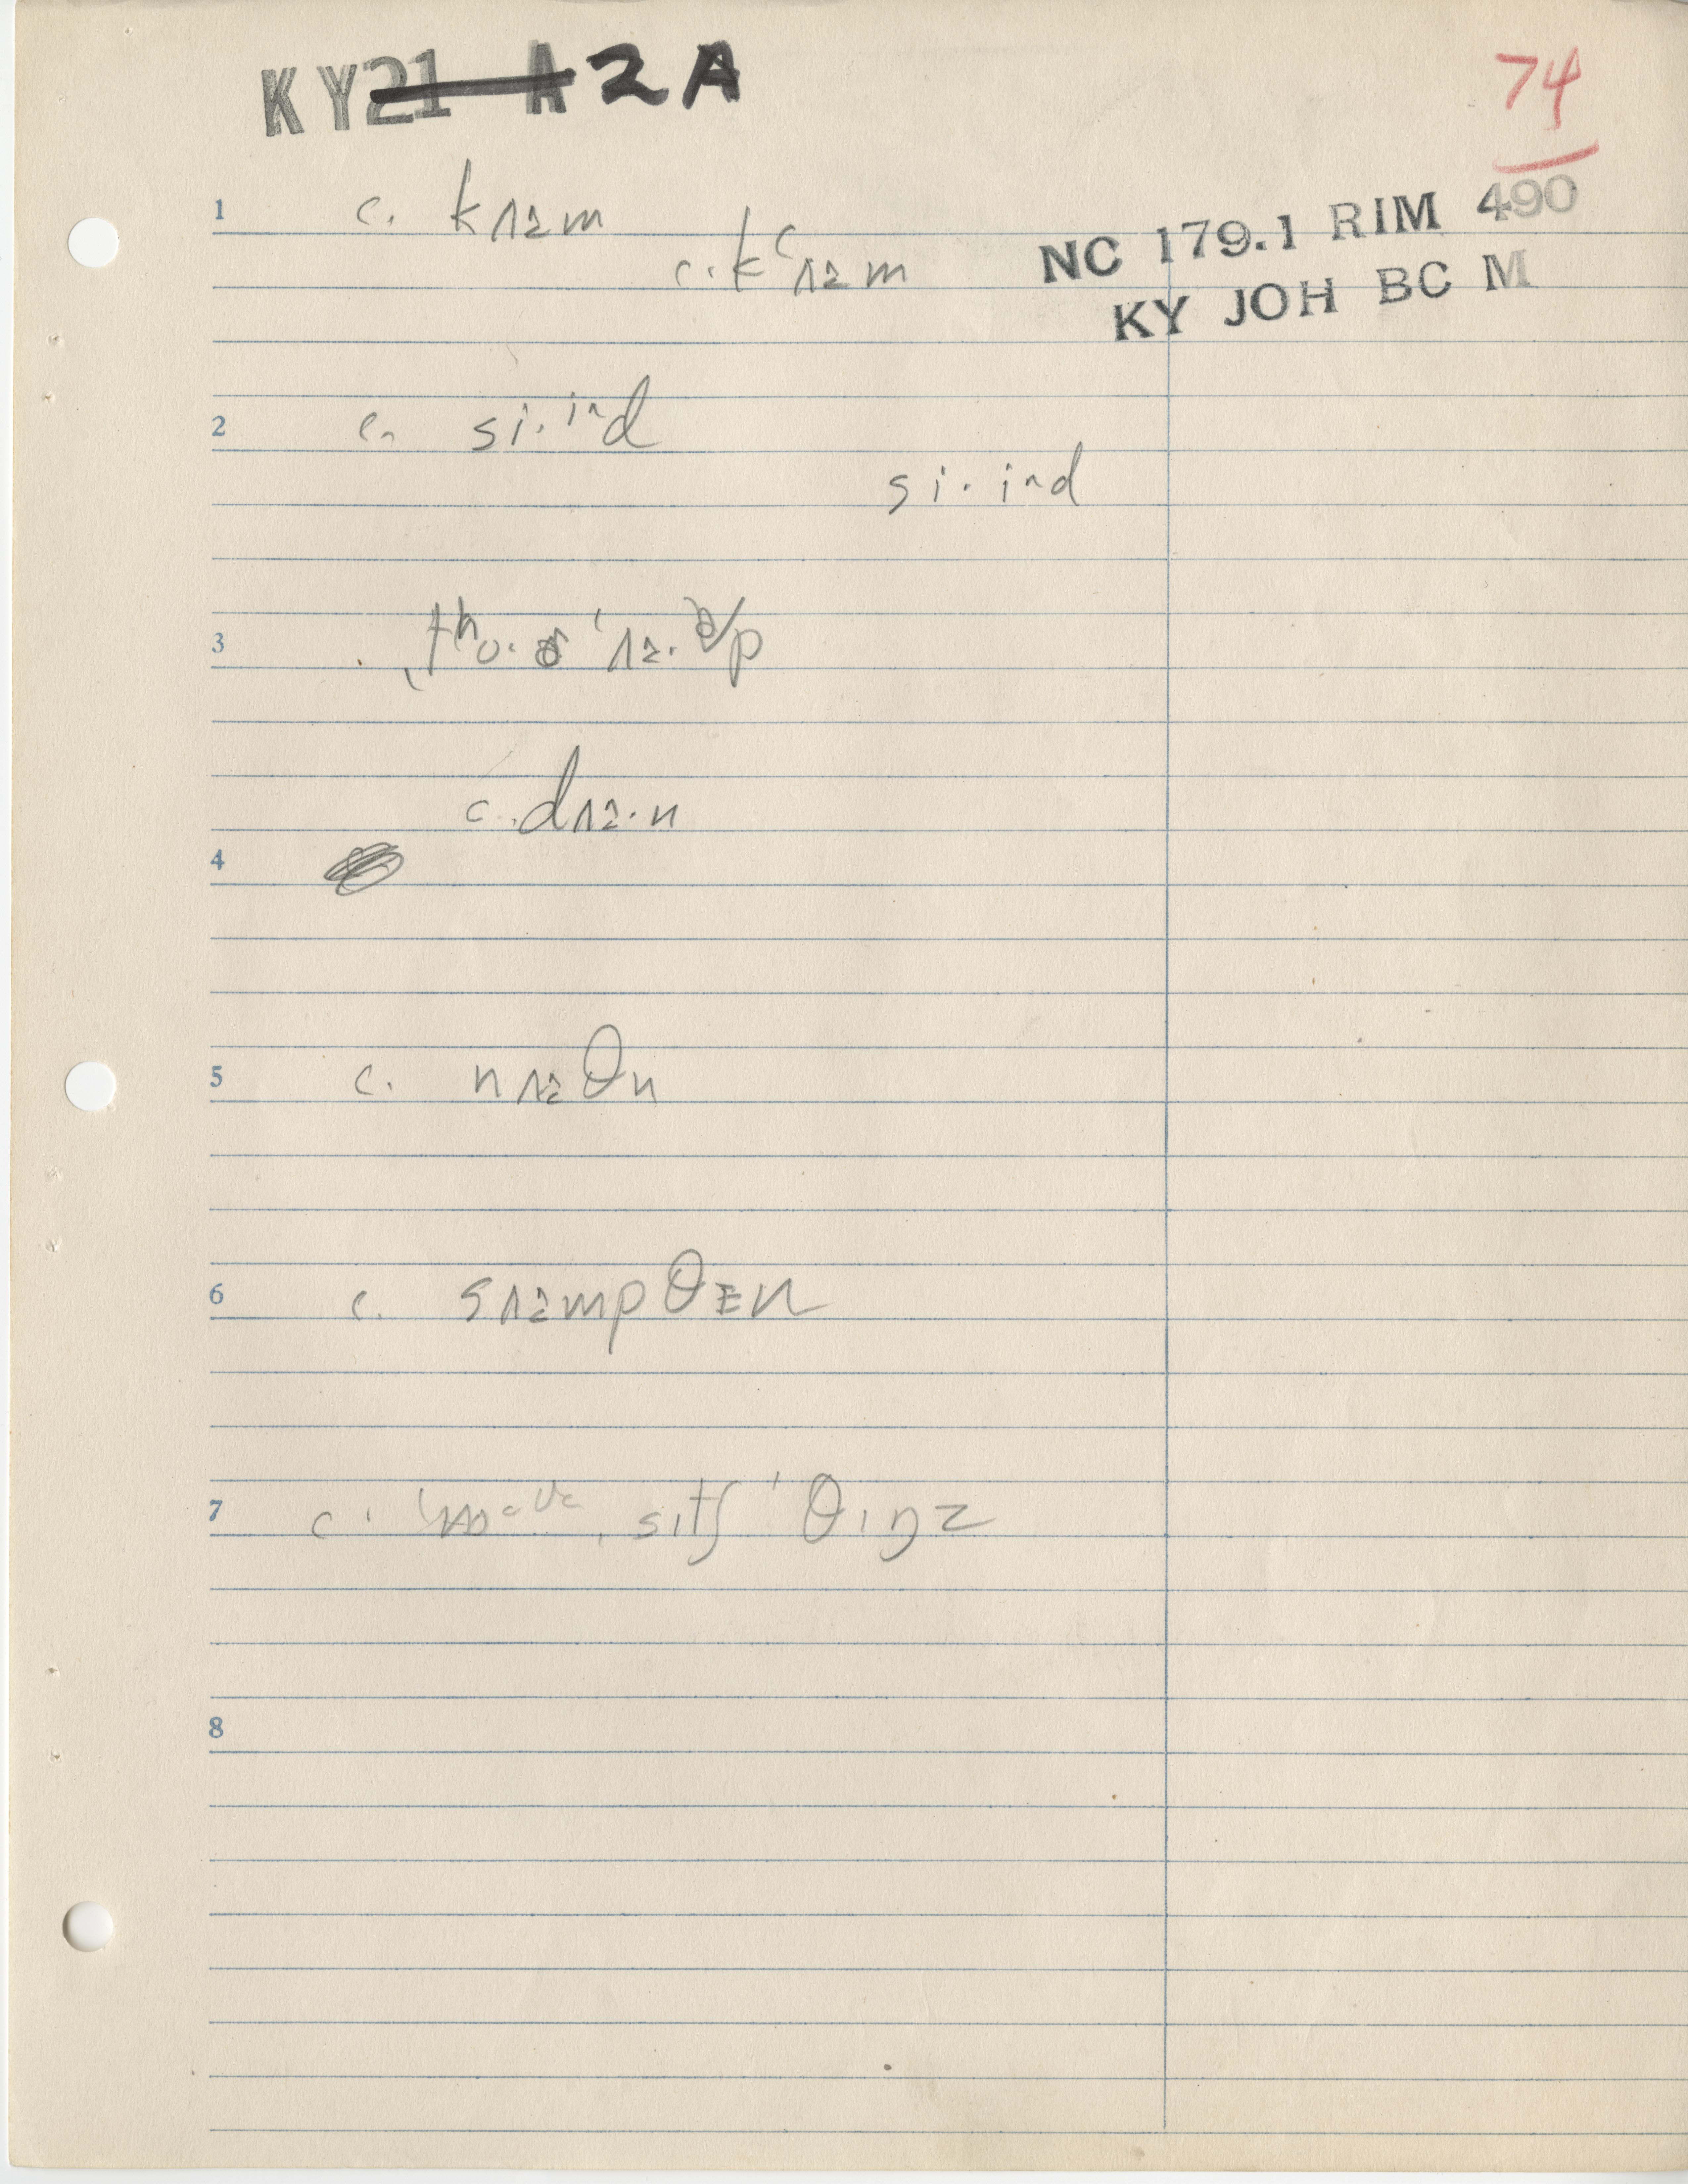 KY21 A 2A
74
490
NC 179.1 RIM
KY JOH BC M
1 c. kʌ̢m
c. kʿʌ̢m
2 c. si·ind
si·ind
3
c. dʌ̢·n
4
5 c. nʌ̢θn
6 c. sʌ̢mpθᴇn
7 c. sɪtʃ ˈθɪŋz
8